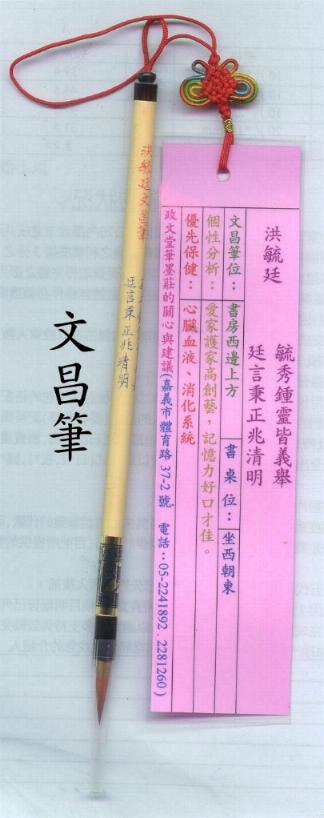 洪毓廷
毓秀鍾靈皆義舉
廷言秉正兆清明
文昌筆位：書房西邊上方
書桌位：坐西朝東
個性分析：愛家護家高創藝，記憶力好口才佳。
優先保健：心臟血液、消化系統
政文堂筆墨莊的關心與建議(嘉義市體育路37-2號 電話：05-2241892．2281260)
洪毓廷文昌筆
廷言秉正兆清明
文昌筆